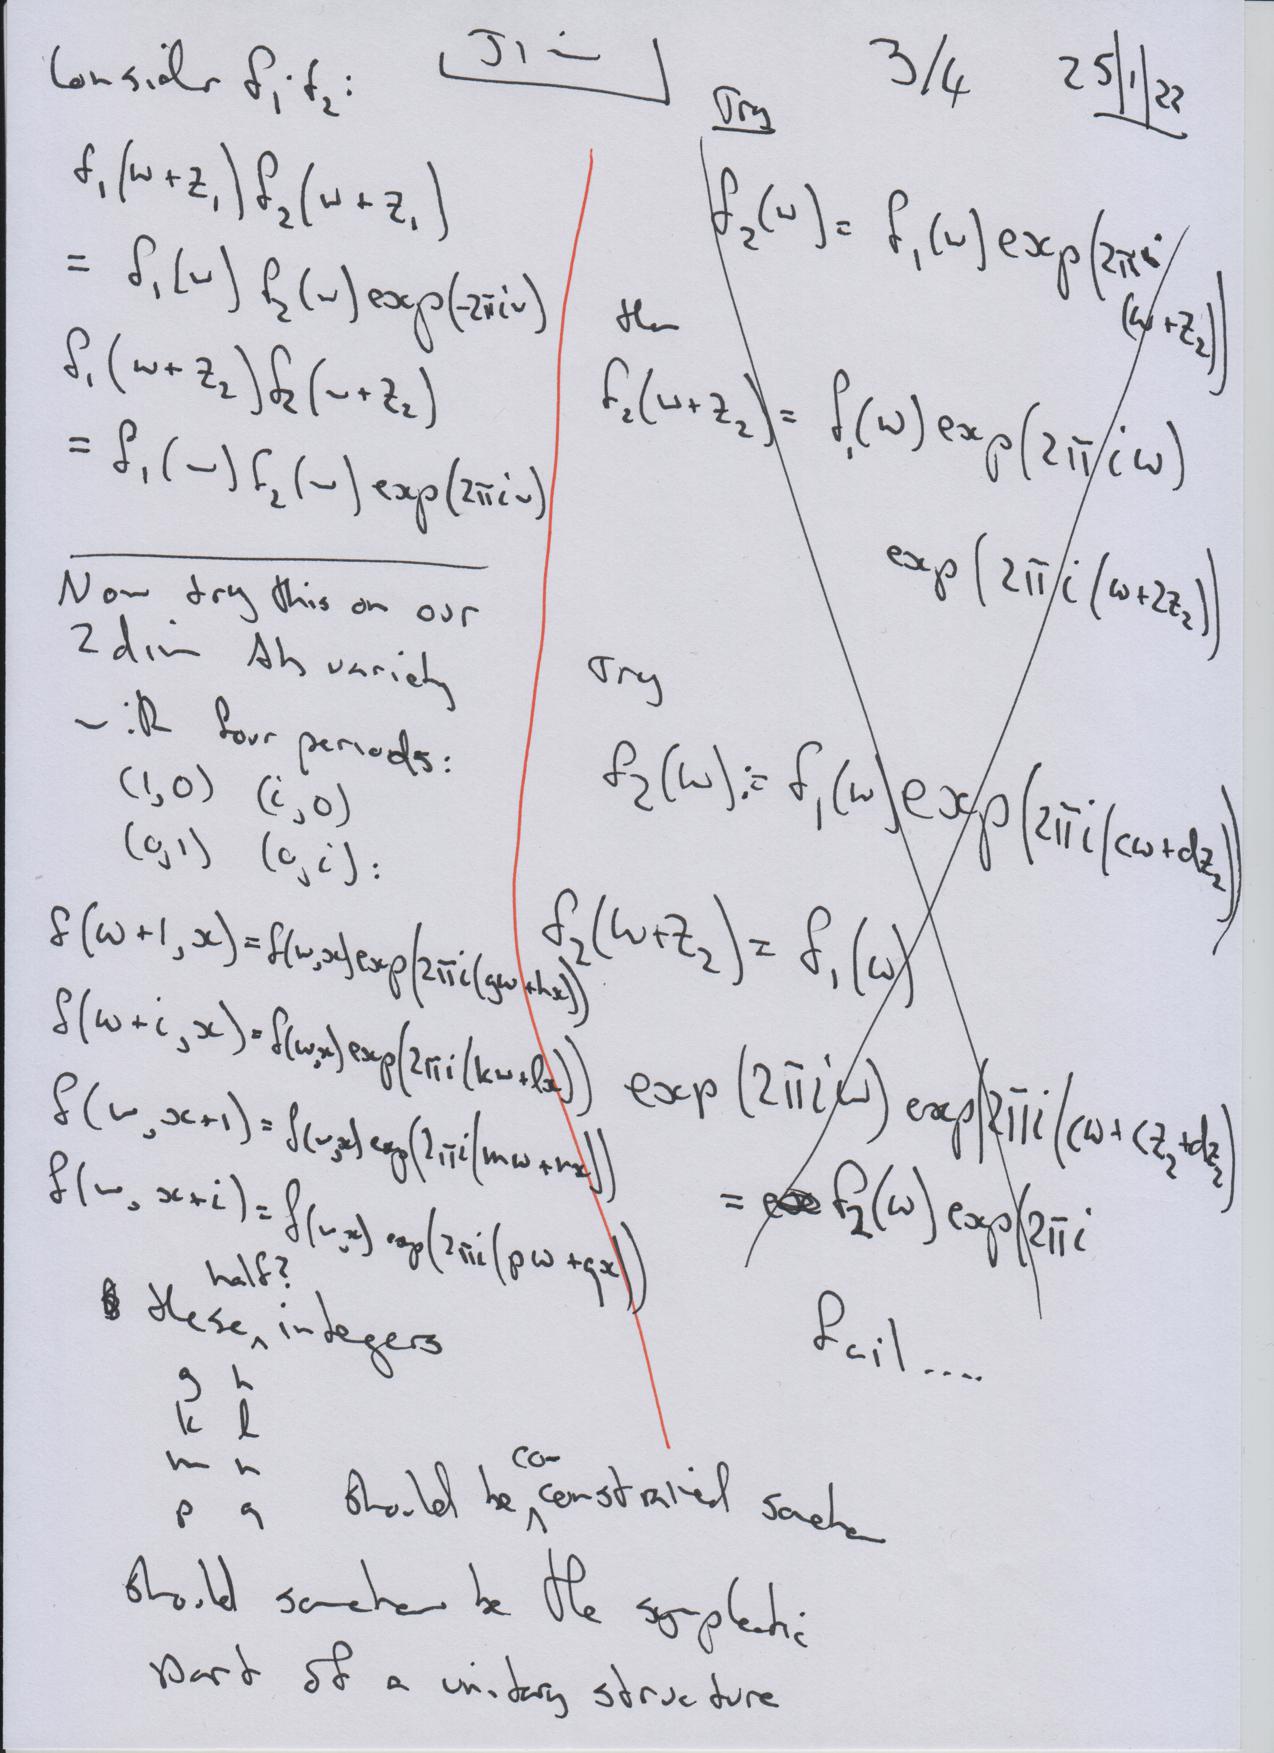 Consider f₁·f₂:
J1
3/4
25/1/22
f₁(w+z₁)f₂(w+z₁)
= f₁(w) f₂(w) exp(-2πiw)
f₁(w+z₂)f₂(w+z₂)
= f₁(w) f₂(w) exp(2πiw)
Now try this on our
2 dim Ab variety
with four periods:
(1,0) (i,0)
(0,1) (0,i):
f(w+1,x)=f(w,x)exp(2πi(gw+hx))
f(w+i,x)=f(w,x)exp(2πi(kw+lx))
f(w,x+1)=f(w,x)exp(2πi(mw+nx))
f(w,x+i)=f(w,x) exp(2πi(pw+qx))
half?
these ^ integers
g h
k l
m n
p q
should be ^ constrained somehow
co-
should somehow be the symplectic
part of a unitary structure
Try
f₂(w)= f₁(w) exp(2πi
(w+z₂))
then
f₂(w+z₂)= f₁(w) exp(2πiw)
exp(2πi(w+2z₂))
Try
f₂(w):= f₁(w)exp(2πi(cw+dz₂))
f₂(w+z₂)= f₁(w)
exp(2πiw) exp(2πi(cw+cz₂+dz₂)
= f₂(w) exp(2πi
fail....